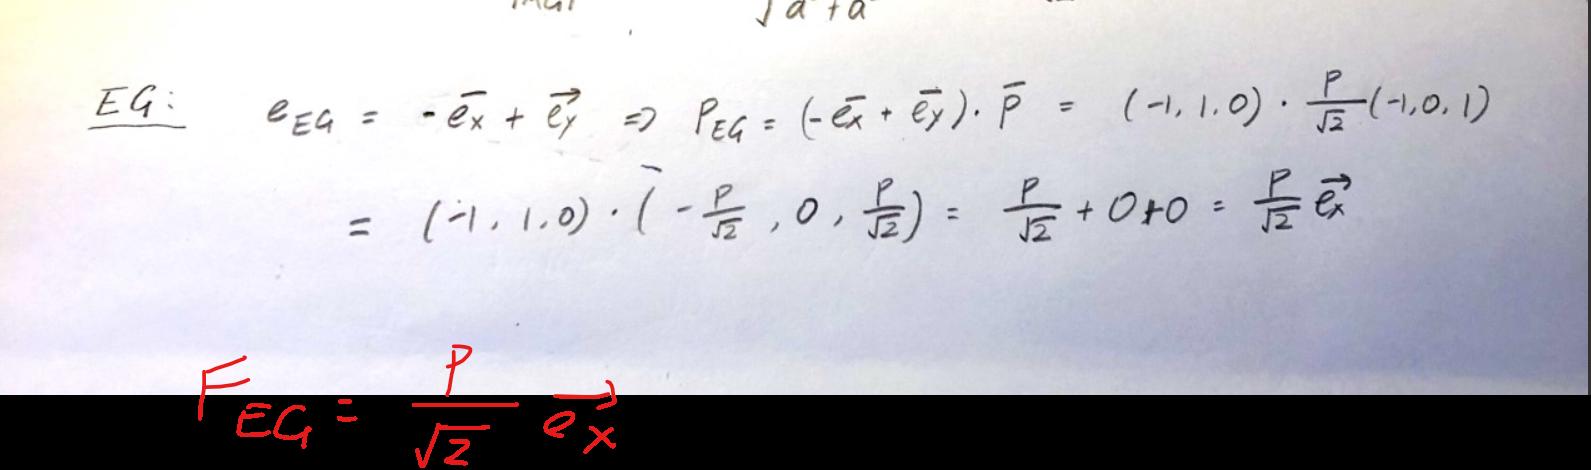 √a + a
EG: e_EG = -e̅x + e⃗y ⇒ P_EG = (-e̅x + e̅y) · p̅ = (-1, 1, 0) · P/√2 (-1, 0, 1)
= (-1, 1, 0) · (-P/√2, 0, P/√2) = P/√2 + 0+0 = P/√2 e⃗x
F_EG = P/√2 e⃗x